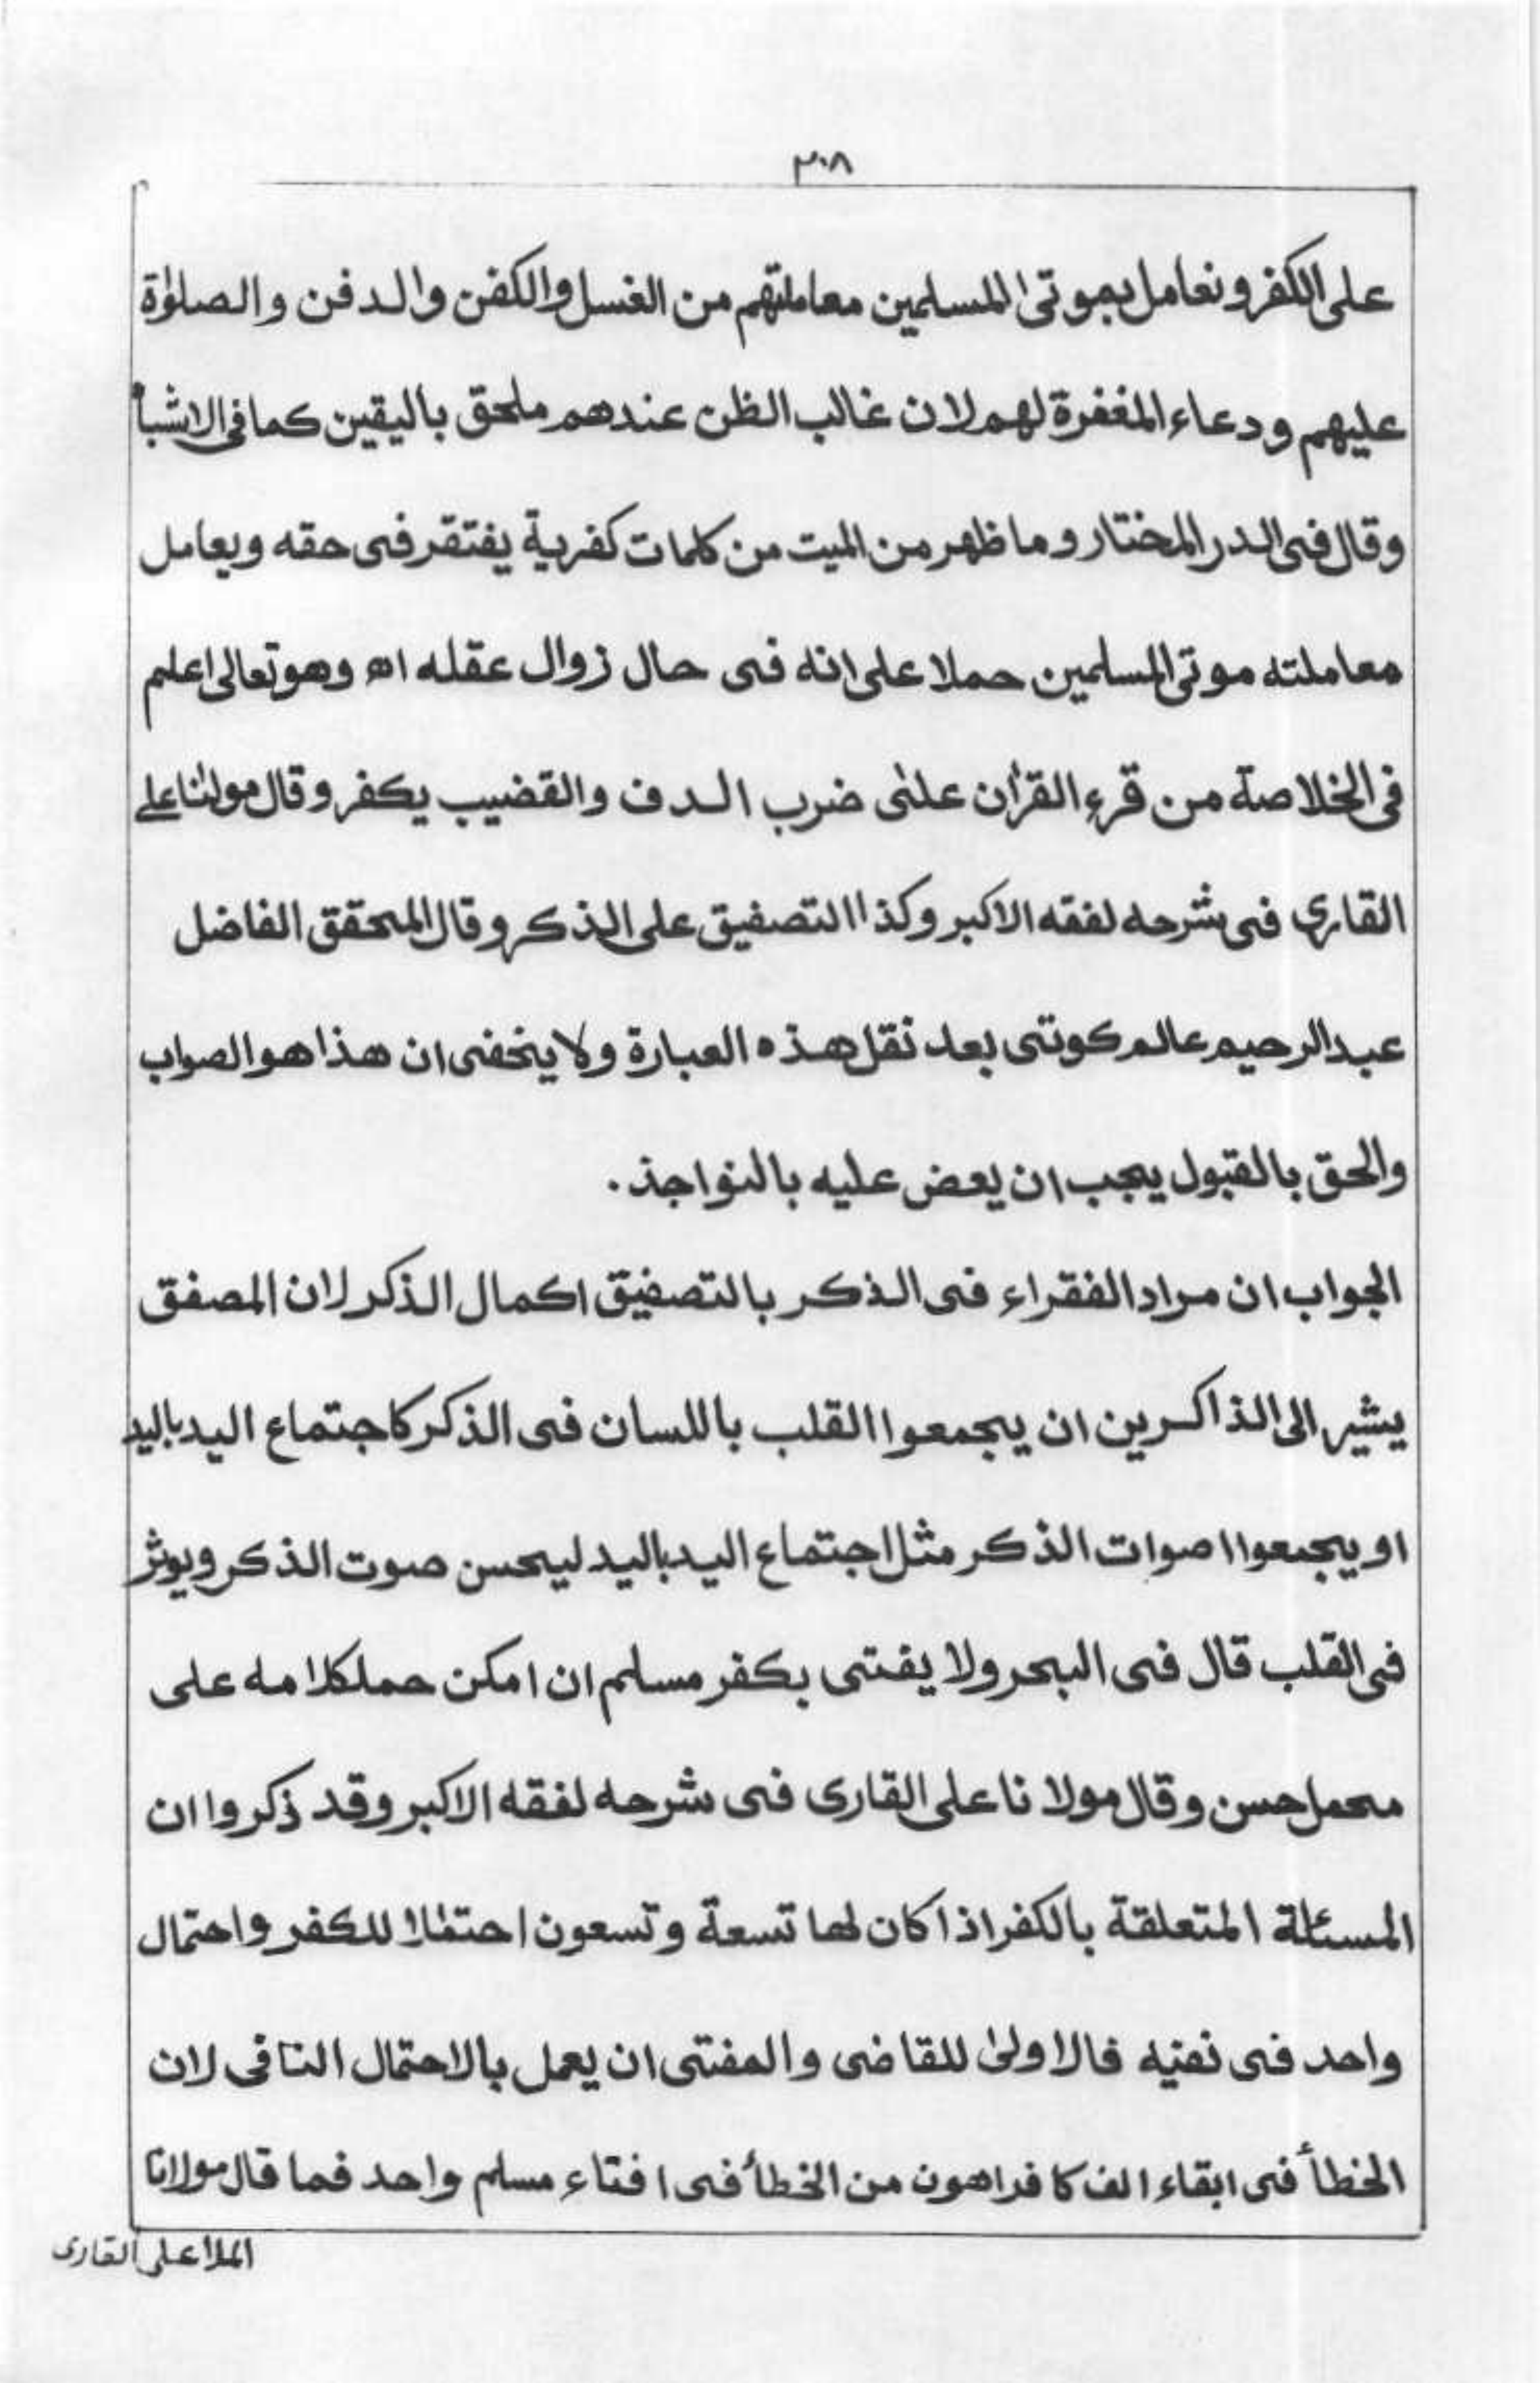 ٣٠٨
على الكفر ونعامل بموتى المسلمين معاملتهم من الغسل والكفن والدفن والصلوٰة
عليهم ودعاء المغفرة لهم لان غالب الظن عندهم ملحق باليقين كما فى الاشباٰ
وقال فى الدر المختار وما ظهر من الميت من كلمات كفرية يفتقر فى حقه ويعامل
معاملته موتى المسلمين حملا على انه فى حال زوال عقله اھ وهو تعالى اعلم
فى الخلاصة من قرء القرأن علىٰ ضرب الدف والقضيب يكفر وقال مولٰنا على
القارى فى شرحه لفقه الاكبر وكذا التصفيق على الذكر وقال المحقق الفاضل
عبد الرحيم عالم كوتى بعد نقل هذه العبارة ولا يخفى ان هذا هو الصواب
والحق بالقبول يجب ان يعض عليه بالنواجذ.
الجواب ان مراد الفقراء فى الذكر بالتصفيق اكمال الذكر لان المصفق
يشير الى الذاكرين ان يجمعوا القلب باللسان فى الذكر كاجتماع اليد باليد
او يجمعوا اصوات الذكر مثل اجتماع اليد باليد ليحسن صوت الذكر ويوثر
فى القلب قال فى البحر ولا يفتى بكفر مسلم ان امكن حمل كلامه على
محمل حسن وقال مولانا على القارى فى شرحه لفقه الاكبر وقد ذكروا ان
المسئلة المتعلقة بالكفر اذا كان لها تسعة وتسعون احتمٰلا للكفر واحتمال
واحد فى نفيه فالاولىٰ للقاضى والمفتى ان يعمل بالاحتمال النافى لان
الخطأ فى ابقاء الف كافر اهون من الخطأ فى افتاء مسلم واحد فما قال مولانا
الملا على القارى